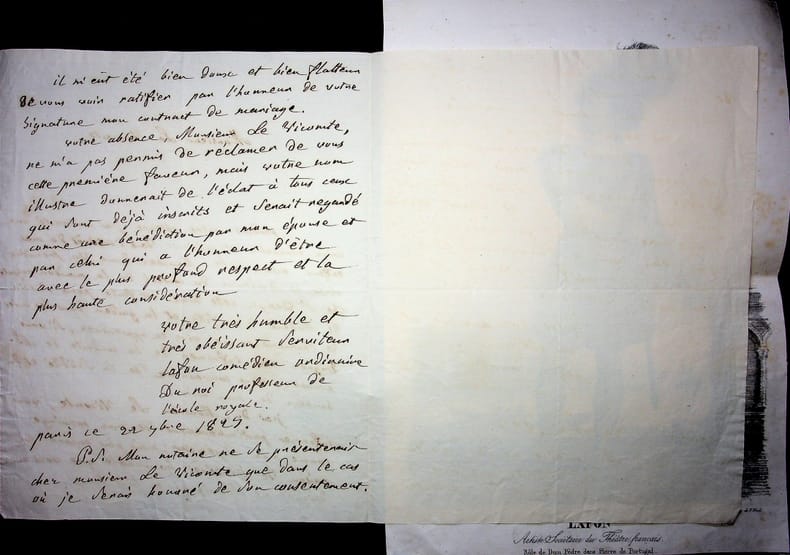 il m'eût été bien doux et bien flatteur
de vous voir ratifier par l'honneur de votre
signature mon contract de mariage.
votre absence, Monsieur Le Vicomte,
ne m'a pas permis de réclamer de vous
cette première faveur, mais votre nom
illustre donnerait de l'éclat à tous ceux
qui sont déjà inscrits et serait regardé
comme une bénédiction par mon épouse et
par celui qui a l'honneur d'être
avec le plus profond respect et la
plus haute considération
votre très humble et
très obéissant serviteur
lafon comédien ordinaire
Du roi professeur de
l'école royale.
paris ce 22 9bre 1825.
P.S. Mon notaire ne se présenterait
cher monsieur Le Vicomte que dans le cas
où je serais honoré de son consentement.
LAFON
Artiste Sociétaire du Théâtre français.
Rôle de Dom Pèdre dans Pierre de Portugal